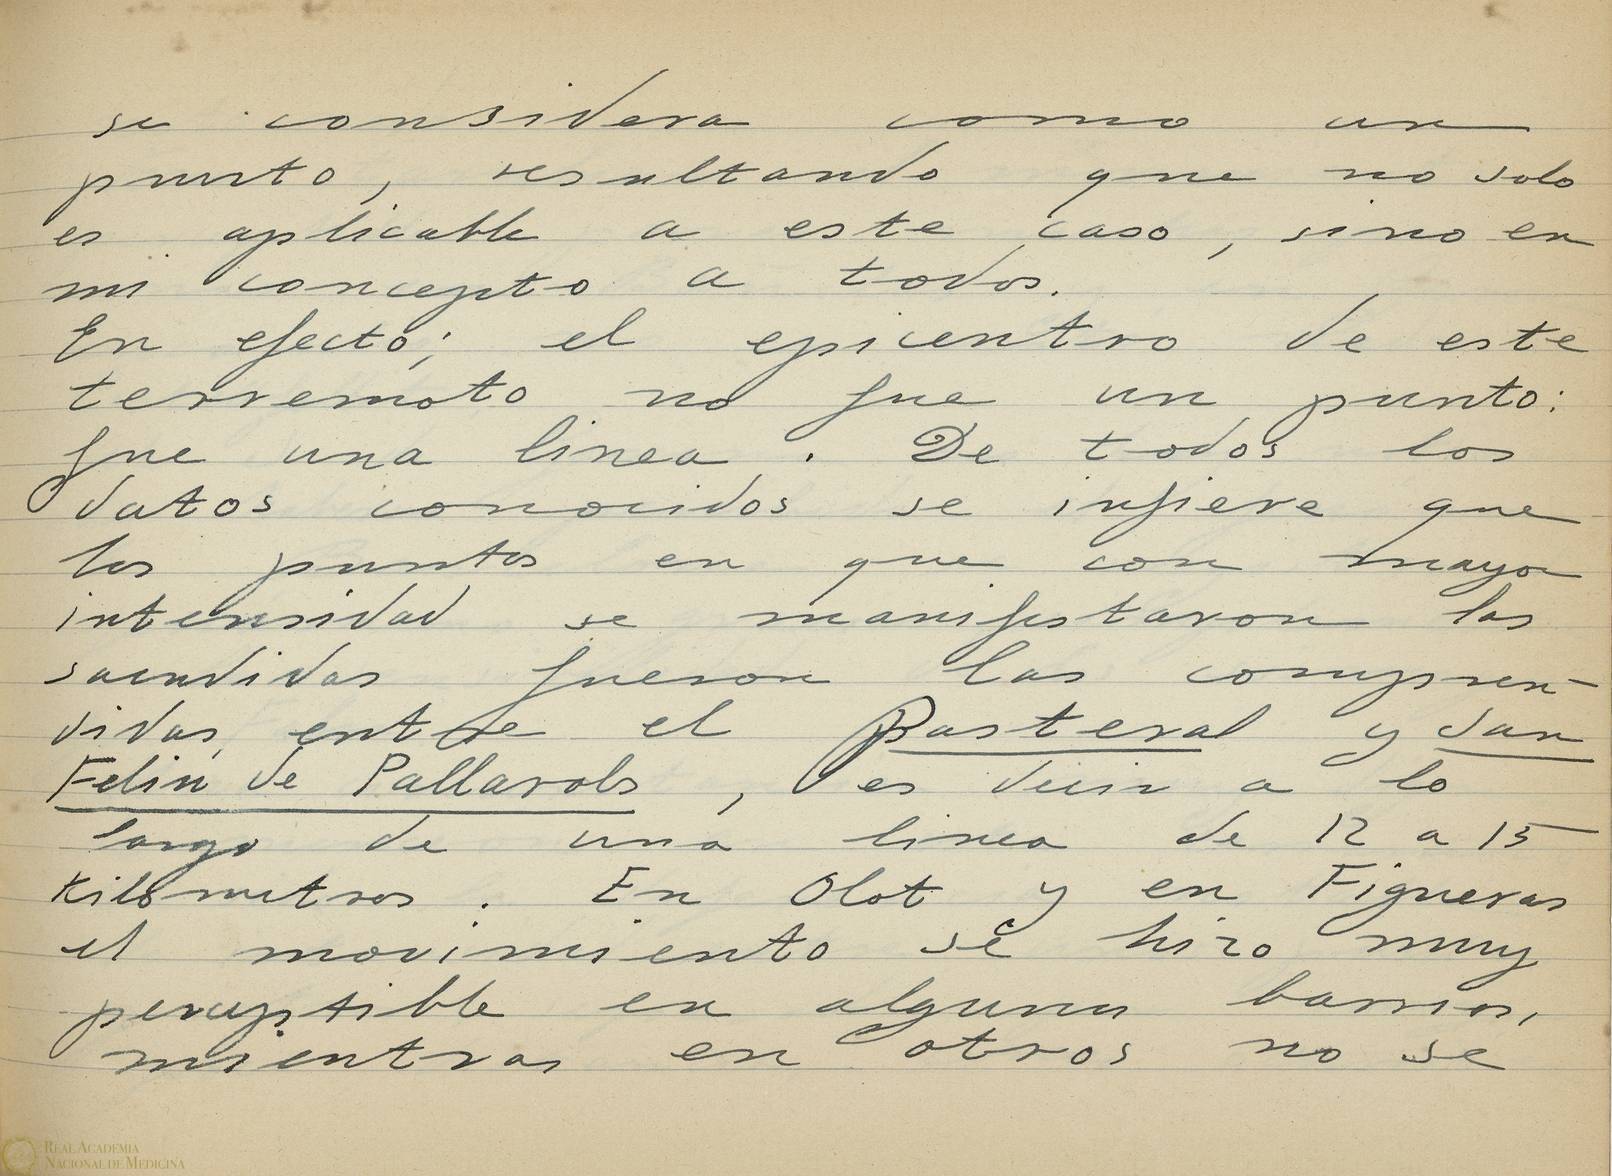 se considera como un
punto, resultando que no solo
es aplicable a este caso, sino en
mi concepto a todos.
En efecto; el epicentro de este
terremoto no fue un punto:
fue una linea. De todos los
datos conocidos se infiere que
los puntos en que con mayor
intensidad se manifestaron las
sacudidas fueron las compren-
didas entre el Pasteral y San
Feliu de Pallarols, es decir a lo
largo de una linea de 12 a 15
Kilometros. En Olot y en Figueras
el movimiento se hizo muy
perceptible en algunos barrios,
mientras en otros no se
REAL ACADEMIA
NACIONAL DE MEDICINA